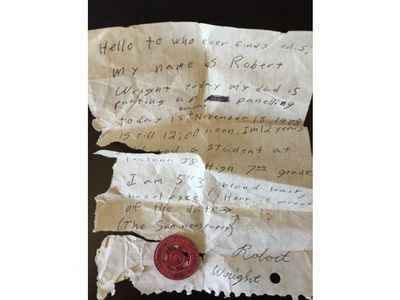 Hello to who ever finds this.
my name is Robert
Wright today my dad is
putting up panelling
today is November 18, 1978
is till 12:00 noon. Im 12 years
and a student at
High 7th grade
I am 5"3 blond hair,
of the date
(The Sun newspaper)
Robert
Wright